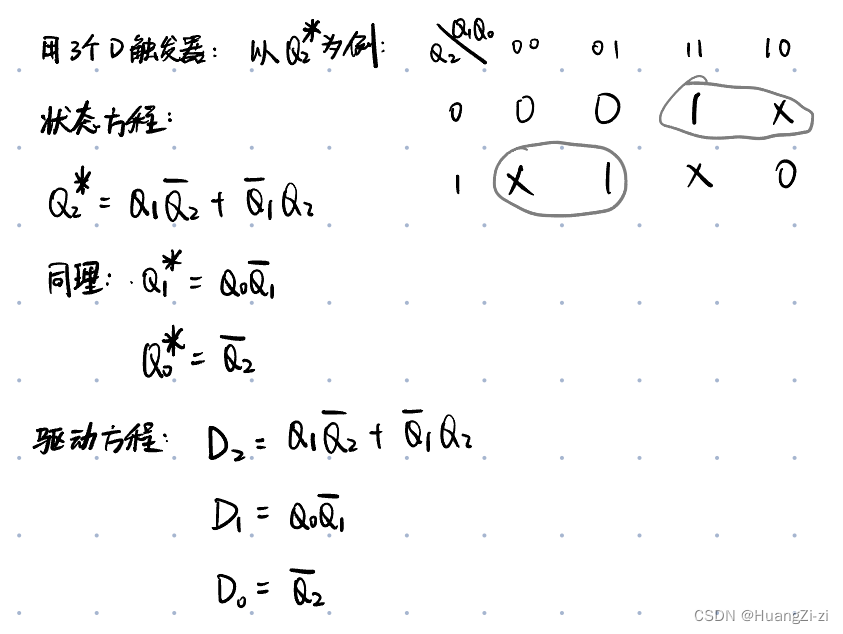 用3个D触发器: 以Q₂*为例: Q₂\Q₁Q₀ 00 01 11 10
0 0 0 1 x
状态方程:
1 x 1 x 0
Q₂* = Q₁Q̅₂ + Q̅₁Q₂
同理: Q₁* = Q₀Q̅₁
Q₀* = Q̅₂
驱动方程: D₂ = Q₁Q̅₂ + Q̅₁Q₂
D₁ = Q₀Q̅₁
D₀ = Q̅₂
CSDN @HuangZi-zi